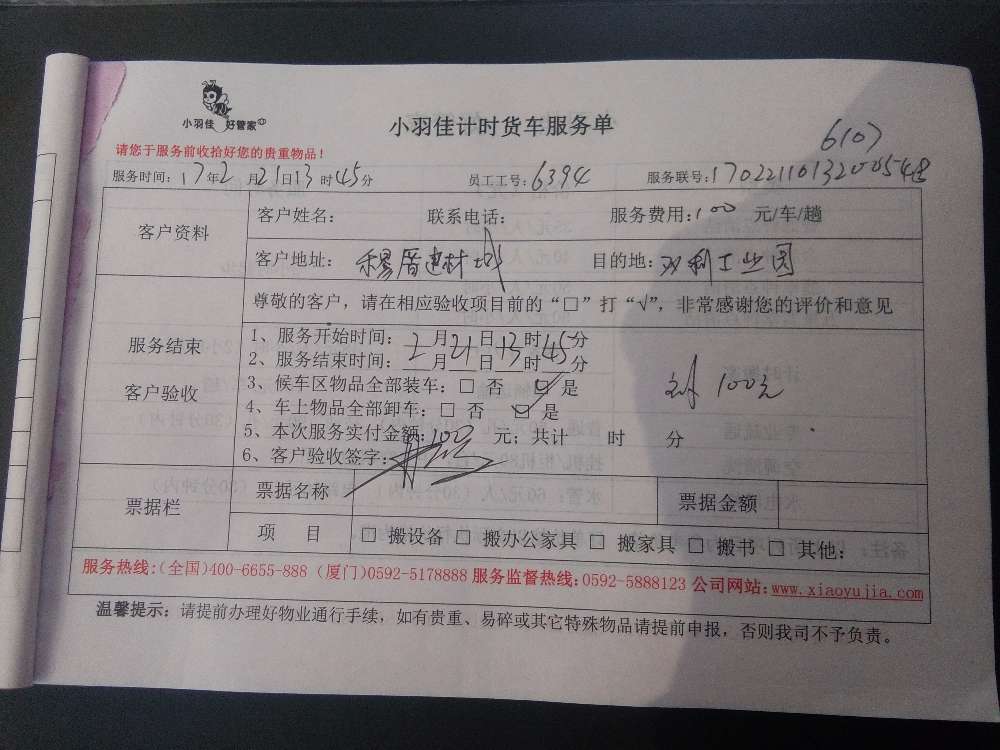 小羽佳 好管家
小羽佳计时货车服务单
6107
请您于服务前收拾好您的贵重物品！
服务时间：17年2月21日13时45分 员工工号：6394 服务联号：
客户资料
客户姓名： 联系电话： 服务费用：100 元/车/趟
客户地址： 穆厝建材城 目的地：双利工业园
服务结束
客户验收
尊敬的客户，请在相应验收项目前的“□”打“√”，非常感谢您的评价和意见
1、服务开始时间：2月21日13时45分
2、服务结束时间：__月__日__时__分
3、候车区物品全部装车：□ 否 ☑ 是
4、车上物品全部卸车：□ 否 ☑ 是
5、本次服务实付金额：100 元；共计 时 分
6、客户验收签字：
100元
票据栏
票据名称 票据金额
项 目 □ 搬设备 □ 搬办公家具 □ 搬家具 □ 搬书 □ 其他：
服务热线：(全国)400-6655-888 (厦门)0592-5178888 服务监督热线：0592-5888123 公司网站：www.xiaoyujia.com
温馨提示：请提前办理好物业通行手续，如有贵重、易碎或其它特殊物品请提前申报，否则我司不予负责。